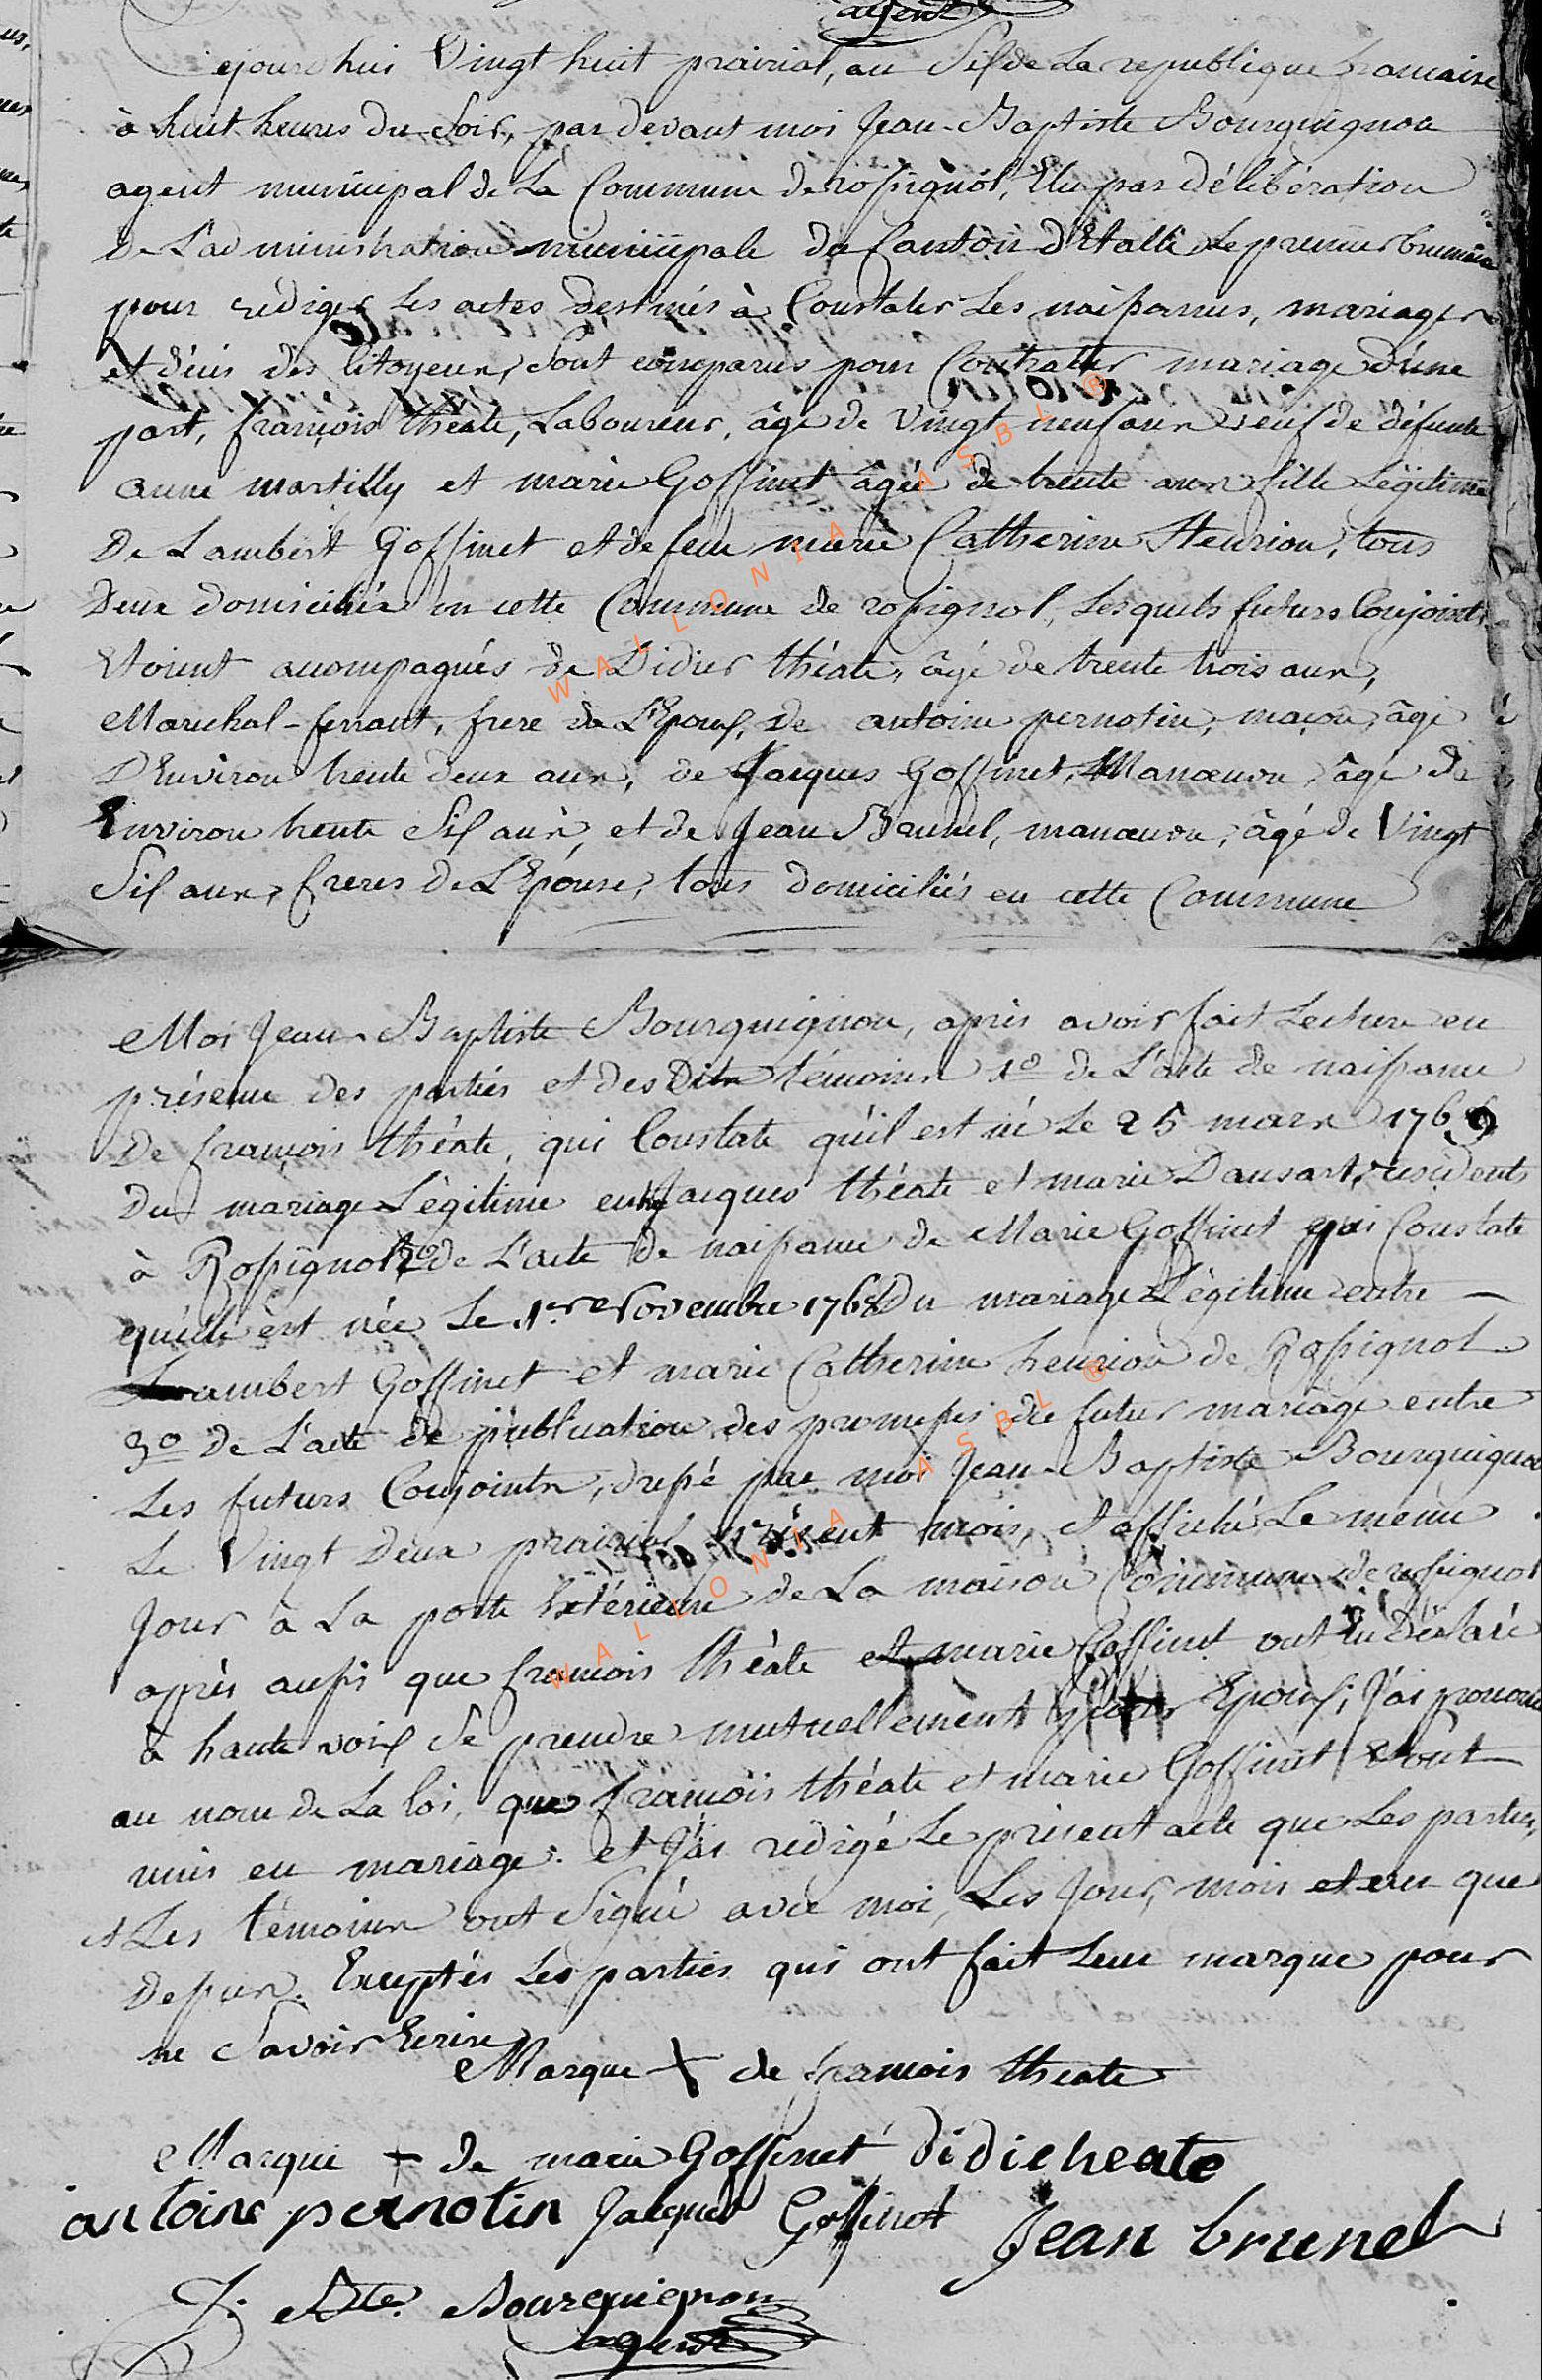 agent
Cejourdhui Vingt huit prairial, an Six de La republique francaise
à huit heures du Soir, par devant moi Jean-Baptiste Bourguignon
agent municipal de La Commune de rossignol, Elu par délibération
De L'administration municipale du Canton d'Etalle Le premier brumaire
pour rediger Les actes destinés à Constater Les naissances, mariages
et décès des Citoyens, Sont comparus pour Contracter mariage d'une
part, françois théate, Laboureur, âgé de Vingt neuf ans veuf de défunte
anne martilly et marie Goffinet âgée de trente ans fille Légitime
De Lambert Goffinet et de feue marie Catherine Henrion, tous
Deux domiciliés en cette Commune de rossignol, Lesquels futurs Conjoints
Etoient accompagnés de Didier théate, âgé de trente trois ans,
Marechal-ferrant, frere de L'Epoux, de antoine pernotin, maçon, âgé
D'Environ trente deux ans, de Jacques Goffinet, Manœuvre, âgé de
Environ trente Six ans, et de Jean Brunel, manœuvre, âgé de Vingt
Six ans, freres de L'Epouse, tous domiciliés en cette Commune
Moi Jean-Baptiste Bourguignon, après avoir fait Lecture en
présence des parties et des Dits témoins 1° de L'acte de naissance
De françois théate, qui Constate qu'il est né Le 25 mars 1769
Du mariage Légitime entre Jacques théate et marie Dausart, residents
à Rossignol 2° de L'acte de naissance de Marie Goffinet qui Constate
qu'elle est née Le 1.er Novembre 1768 Du mariage Légitime entre
Lambert Goffinet et marie Catherine henrion de Rossignol
3° de L'acte de publication des promesses de futur mariage entre
Les futurs Conjoints, dressé par moi Jean-Baptiste Bourguignon
Le Vingt Deux prairial présent mois, et affiché Le même
Jour à La porte Extérieure de La maison Commune de rossignol
après aussi que francois théate et marie Goffinet ont eu déclaré
à haute voix Se prendre mutuellement pour Epoux; J'ai prononcé
au nom de La loi, que françois théate et marie Goffinet Sont
unis en mariage. et J'ai rédigé Le présent acte que Les parties,
et Les témoins ont Signé avec moi, Les Jour, mois et an que
dessus. Exceptés Les parties qui ont fait Leur marque pour
ne Savoir Ecrire
Marque + de francois theate
Marque + de marie Goffinet didie heate
antoine pernotin Jacques Goffinet Jean brunel
J. Bte. Bourguignon
agent
WALLONIA ASBL ®
WALLONIA ASBL ®